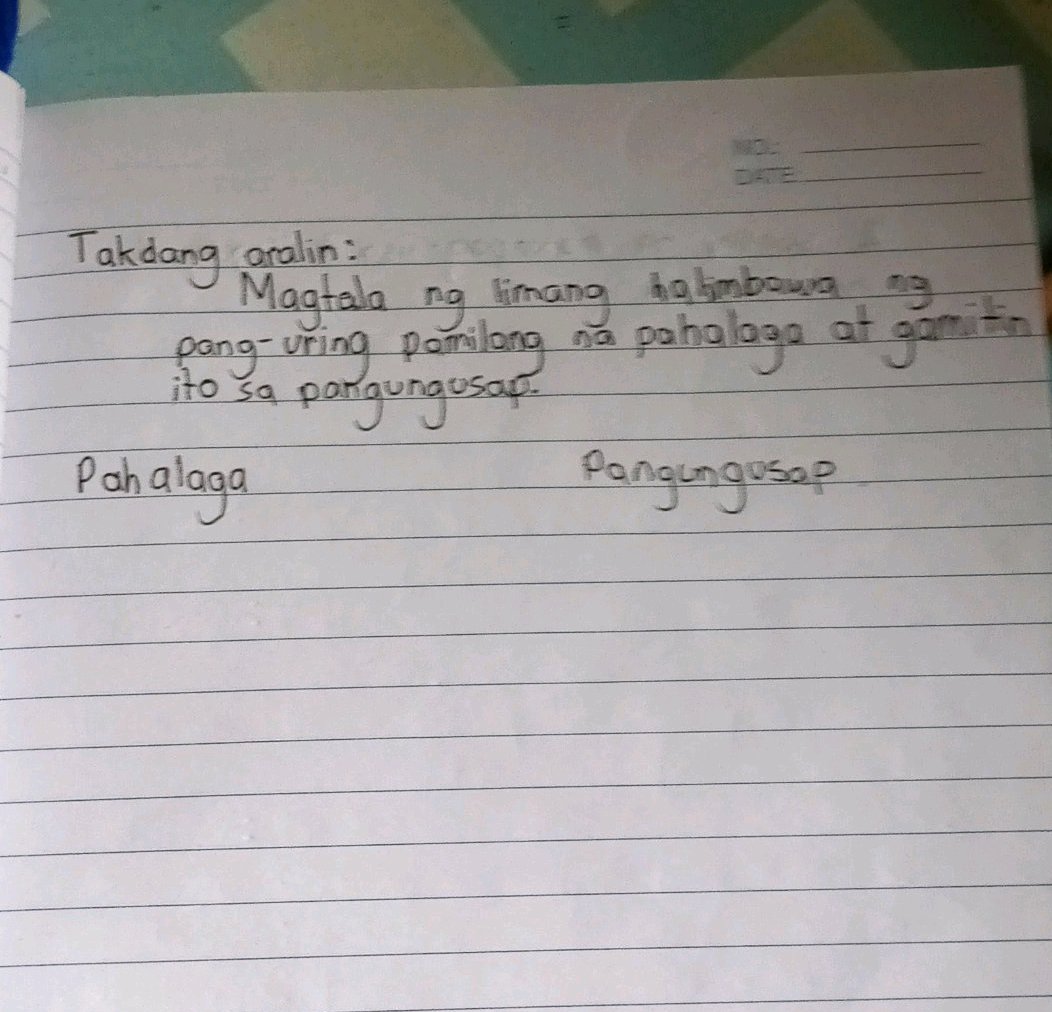 NO.:
DATE:
Takdang aralin:
Magtala ng limang halimbawa ng
pang-uring pamilang na pahalaga at gamitin
ito sa pangungusap.
Pahalaga Pangungusap